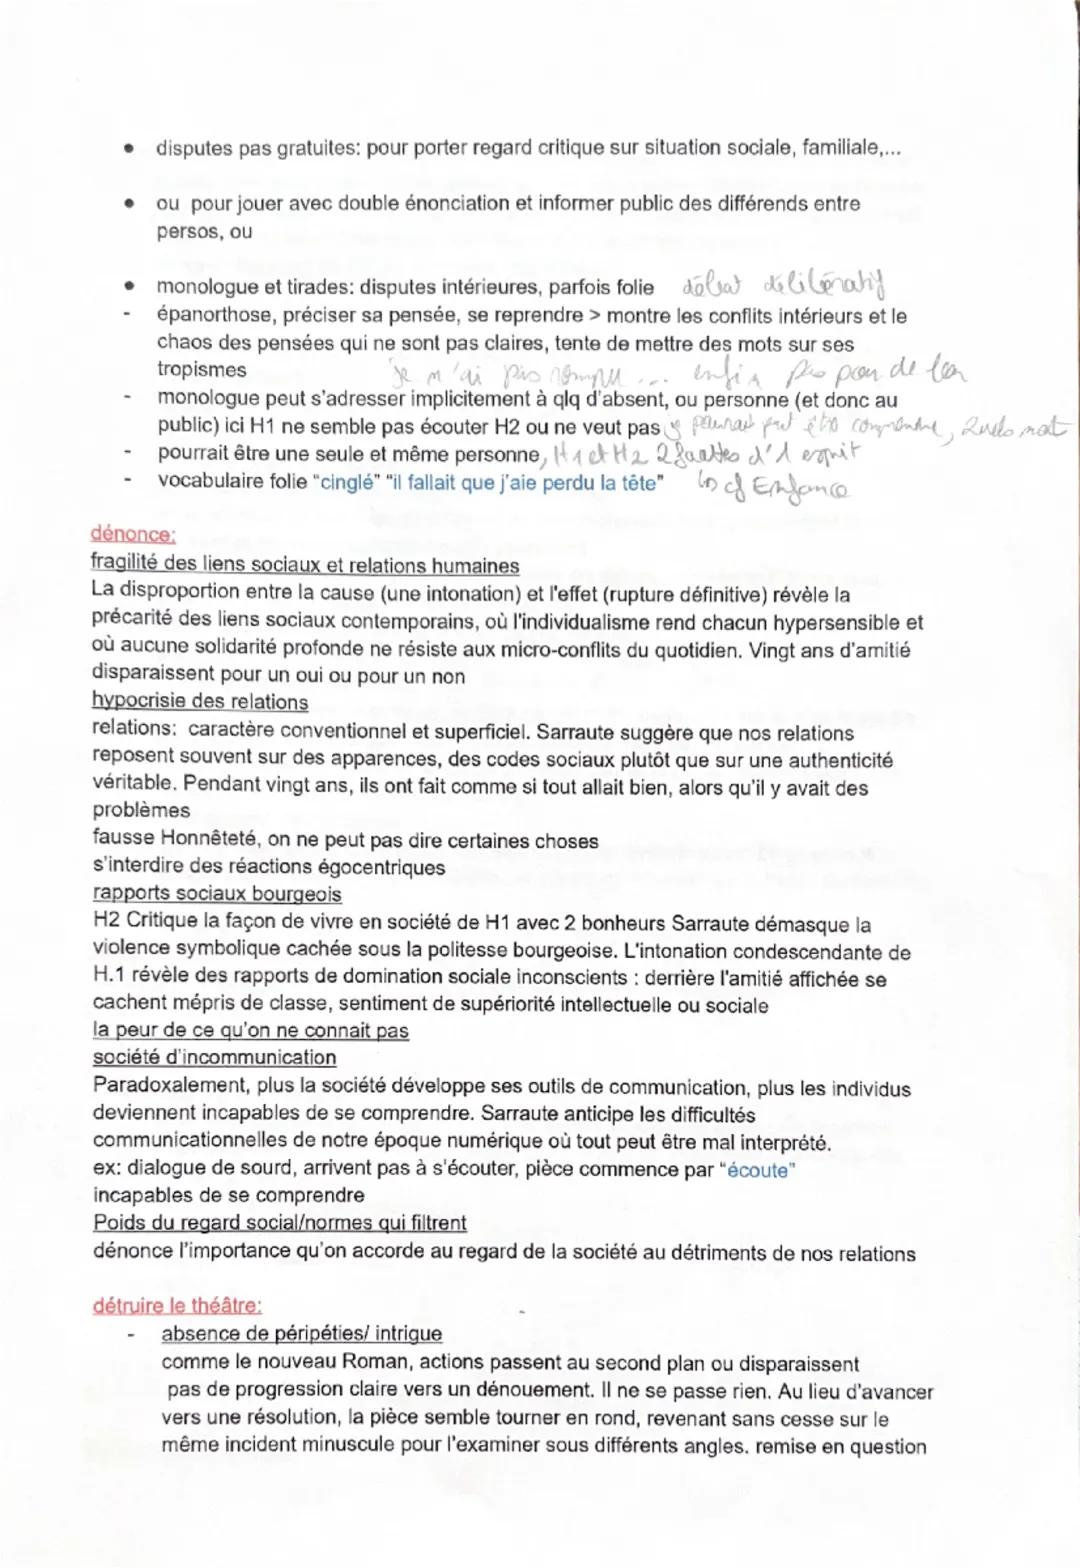 • disputes pas gratuites: pour porter regard critique sur situation sociale, familiale,...
• ou pour jouer avec double énonciation et informer public des différends entre
persos, ou
• monologue et tirades: disputes intérieures, parfois folie débat délibératif
- épanorthose, préciser sa pensée, se reprendre > montre les conflits intérieurs et le
chaos des pensées qui ne sont pas claires, tente de mettre des mots sur ses
tropismes
je n'ai pas rompu ... enfin pas pour de bon
- monologue peut s'adresser implicitement à qlq d'absent, ou personne (et donc au
public) ici H1 ne semble pas écouter H2 ou ne veut pas
- pourrait être une seule et même personne, H1 et H2 2 facettes d'1 esprit
- vocabulaire folie "cinglé" "il fallait que j'aie perdu la tête" cf Enfance
dénonce:
fragilité des liens sociaux et relations humaines
La disproportion entre la cause (une intonation) et l'effet (rupture définitive) révèle la
précarité des liens sociaux contemporains, où l'individualisme rend chacun hypersensible et
où aucune solidarité profonde ne résiste aux micro-conflits du quotidien. Vingt ans d'amitié
disparaissent pour un oui ou pour un non
hypocrisie des relations
relations: caractère conventionnel et superficiel. Sarraute suggère que nos relations
reposent souvent sur des apparences, des codes sociaux plutôt que sur une authenticité
véritable. Pendant vingt ans, ils ont fait comme si tout allait bien, alors qu'il y avait des
problèmes
fausse Honnêteté, on ne peut pas dire certaines choses
s'interdire des réactions égocentriques
rapports sociaux bourgeois
H2 Critique la façon de vivre en société de H1 avec 2 bonheurs Sarraute démasque la
violence symbolique cachée sous la politesse bourgeoise. L'intonation condescendante de
H.1 révèle des rapports de domination sociale inconscients : derrière l'amitié affichée se
cachent mépris de classe, sentiment de supériorité intellectuelle ou sociale
la peur de ce qu'on ne connait pas
société d'incommunication
Paradoxalement, plus la société développe ses outils de communication, plus les individus
deviennent incapables de se comprendre. Sarraute anticipe les difficultés
communicationnelles de notre époque numérique où tout peut être mal interprété.
ex: dialogue de sourd, arrivent pas à s'écouter, pièce commence par "écoute"
incapables de se comprendre
Poids du regard social/normes qui filtrent
dénonce l'importance qu'on accorde au regard de la société au détriments de nos relations
détruire le théâtre:
- absence de péripéties/ intrigue
comme le nouveau Roman, actions passent au second plan ou disparaissent
pas de progression claire vers un dénouement. Il ne se passe rien. Au lieu d'avancer
vers une résolution, la pièce semble tourner en rond, revenant sans cesse sur le
même incident minuscule pour l'examiner sous différents angles. remise en question